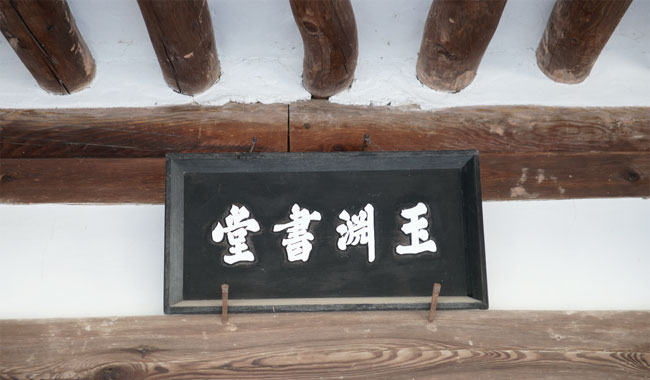 玉淵書堂